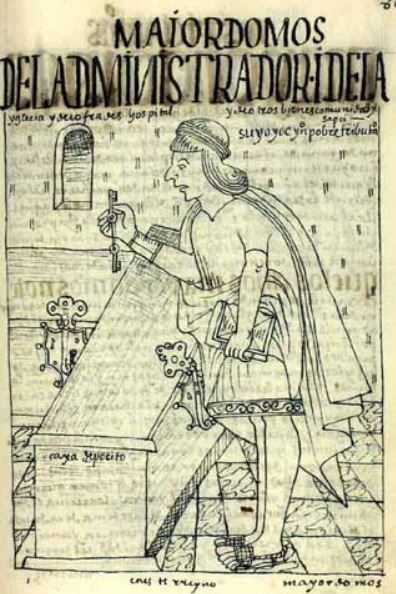 MAIORDOMOS
DEL ADMINISTRADOR·I DE LA
yglecia y de cofrades y ospital y de otros bienes comunidad y sapci
suyoyoc yn pobre tributa
caxa depocito
en este rreyno mayordomos